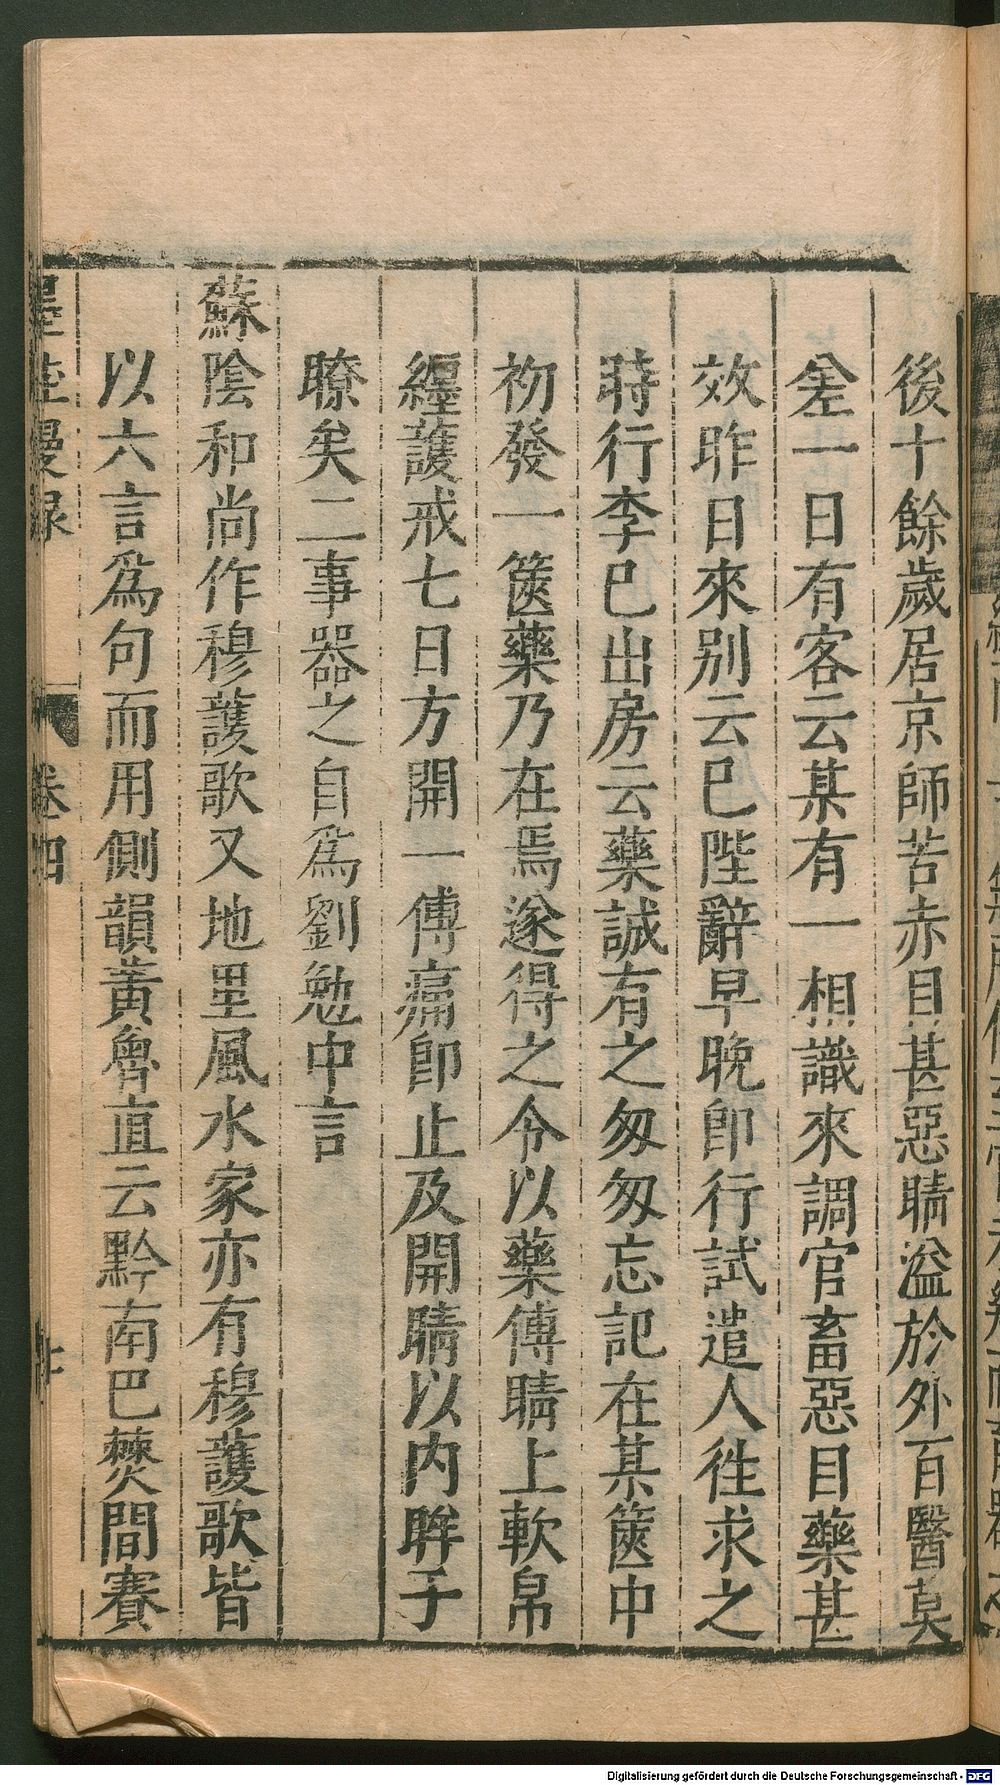 後十餘歲居京師苦赤目甚惡睛溢於外百醫莫
差一日有客云某有一相識來調官畜惡目藥甚
效昨日來别云已陛辭早晚卽行試遣人徃求之
時行李已出房云藥誠有之匆匆忘記在某篋中
初發一篋藥乃在焉遂得之令以藥傅睛上軟帛
纒護戒七日方開一傅痛卽止及開睛以内眸子
瞭矣二事器之自爲劉勉中言
蘇陰和尚作穆護歌又地里風水家亦有穆護歌皆
以六言爲句而用側韻黃魯直云黔南巴僰間賽
墨莊漫錄
卷四
Digitalisierung gefördert durch die Deutsche Forschungsgemeinschaft - DFG